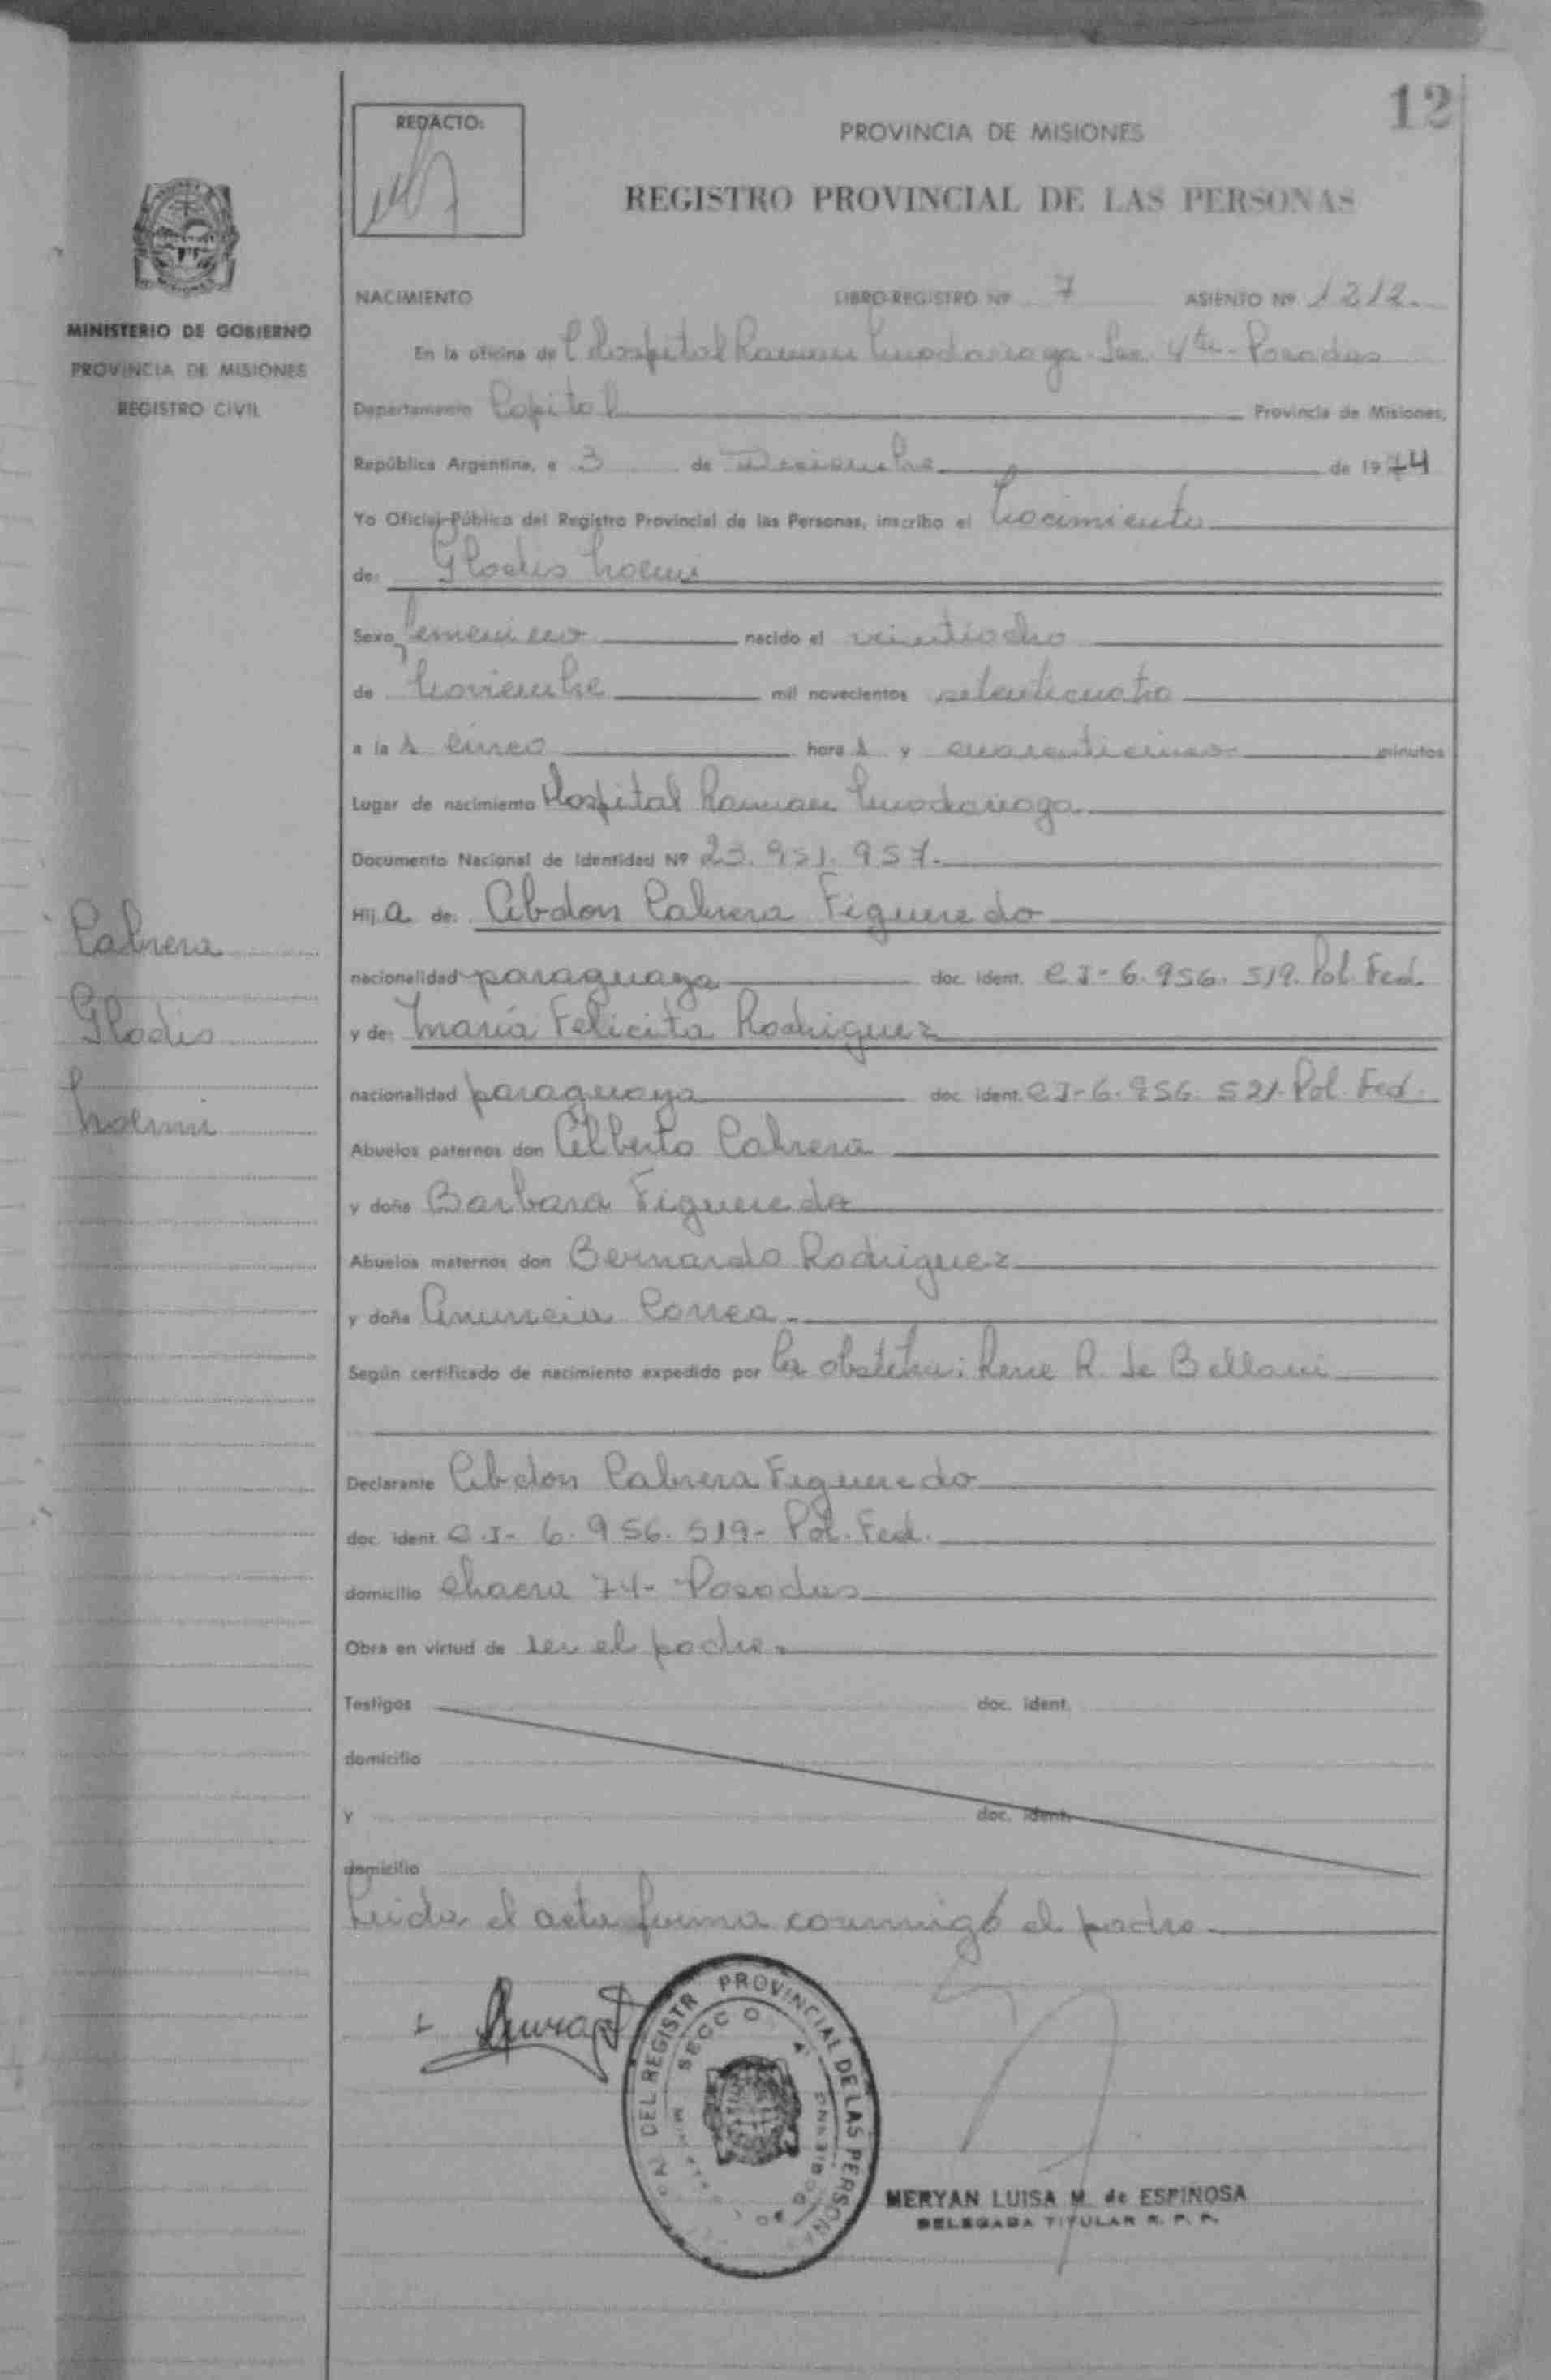 12
REDACTO:
PROVINCIA DE MISIONES
REGISTRO PROVINCIAL DE LAS PERSONAS
MINISTERIO DE GOBIERNO
PROVINCIA DE MISIONES
REGISTRO CIVIL
NACIMIENTO LIBRO-REGISTRO Nº 7 ASIENTO Nº 1212.
En la oficina del Hospital Ramon Madariaga. Sec. 4ta - Posadas
Departamento Capital Provincia de Misiones,
República Argentina, a 3 de Diciembre de 1974
Yo Oficial Público del Registro Provincial de las Personas, inscribo el Nacimiento
de: Gladis Noemi
Sexo femenino nacido el veintiocho
de Noviembre mil novecientos setenticuatro
a la s cinco hora s y cuarenticinco minutos
Lugar de nacimiento Hospital Ramon Madariaga
Documento Nacional de Identidad Nº 23.951.957.
Hij a de: Abdon Cabrera Figueredo
nacionalidad paraguaya doc. ident. C I - 6.956.519. Pol. Fed.
y de: Maria Felicita Rodriguez
nacionalidad paraguaya doc. ident. C I - 6.956.521. Pol. Fed.
Abuelos paternos don Alberto Cabrera
y doña Barbara Figueredo
Abuelos maternos don Bernardo Rodriguez
y doña Anuncia Correa.
Según certificado de nacimiento expedido por la obstetra: Rene R. de Bellani
Declarante Abdon Cabrera Figueredo
doc. ident. C.I - 6.956.519 - Pol. Fed.
domicilio chacra 74 - Posadas
Obra en virtud de ser el padre.
Testigos doc. ident.
domicilio
y doc. ident.
domicilio
Leida el acta firma conmigo el padre
Cabrera
Gladis
Noemi
DEL REGISTR PROVINCIAL DE LAS PERSONA
SECC
MERYAN LUISA M. de ESPINOSA
DELEGADA TITULAR R. P. P.